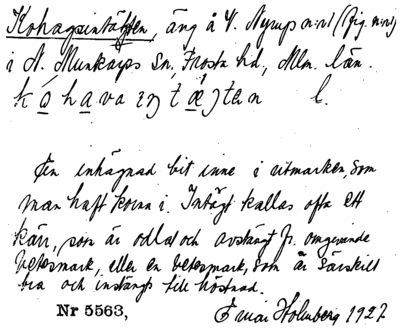 Kohagsintäkten, äng å V. Nyrup n:r 1 (fig. n:r 1)
i N. Munkarps Sn, Frosta hd, Mlm. län.
kóhavaintæ̀jtan l.
En inhägnad bit inne i utmarken, som
man haft korna i. Intägt kallas ofta ett
kärr, som är odlat och avstängt fr. omgivande
betesmark, eller en betesmark, som är särskilt
bra och instängt till höstnad.
Nr 5563,
Einar Holmberg 1927